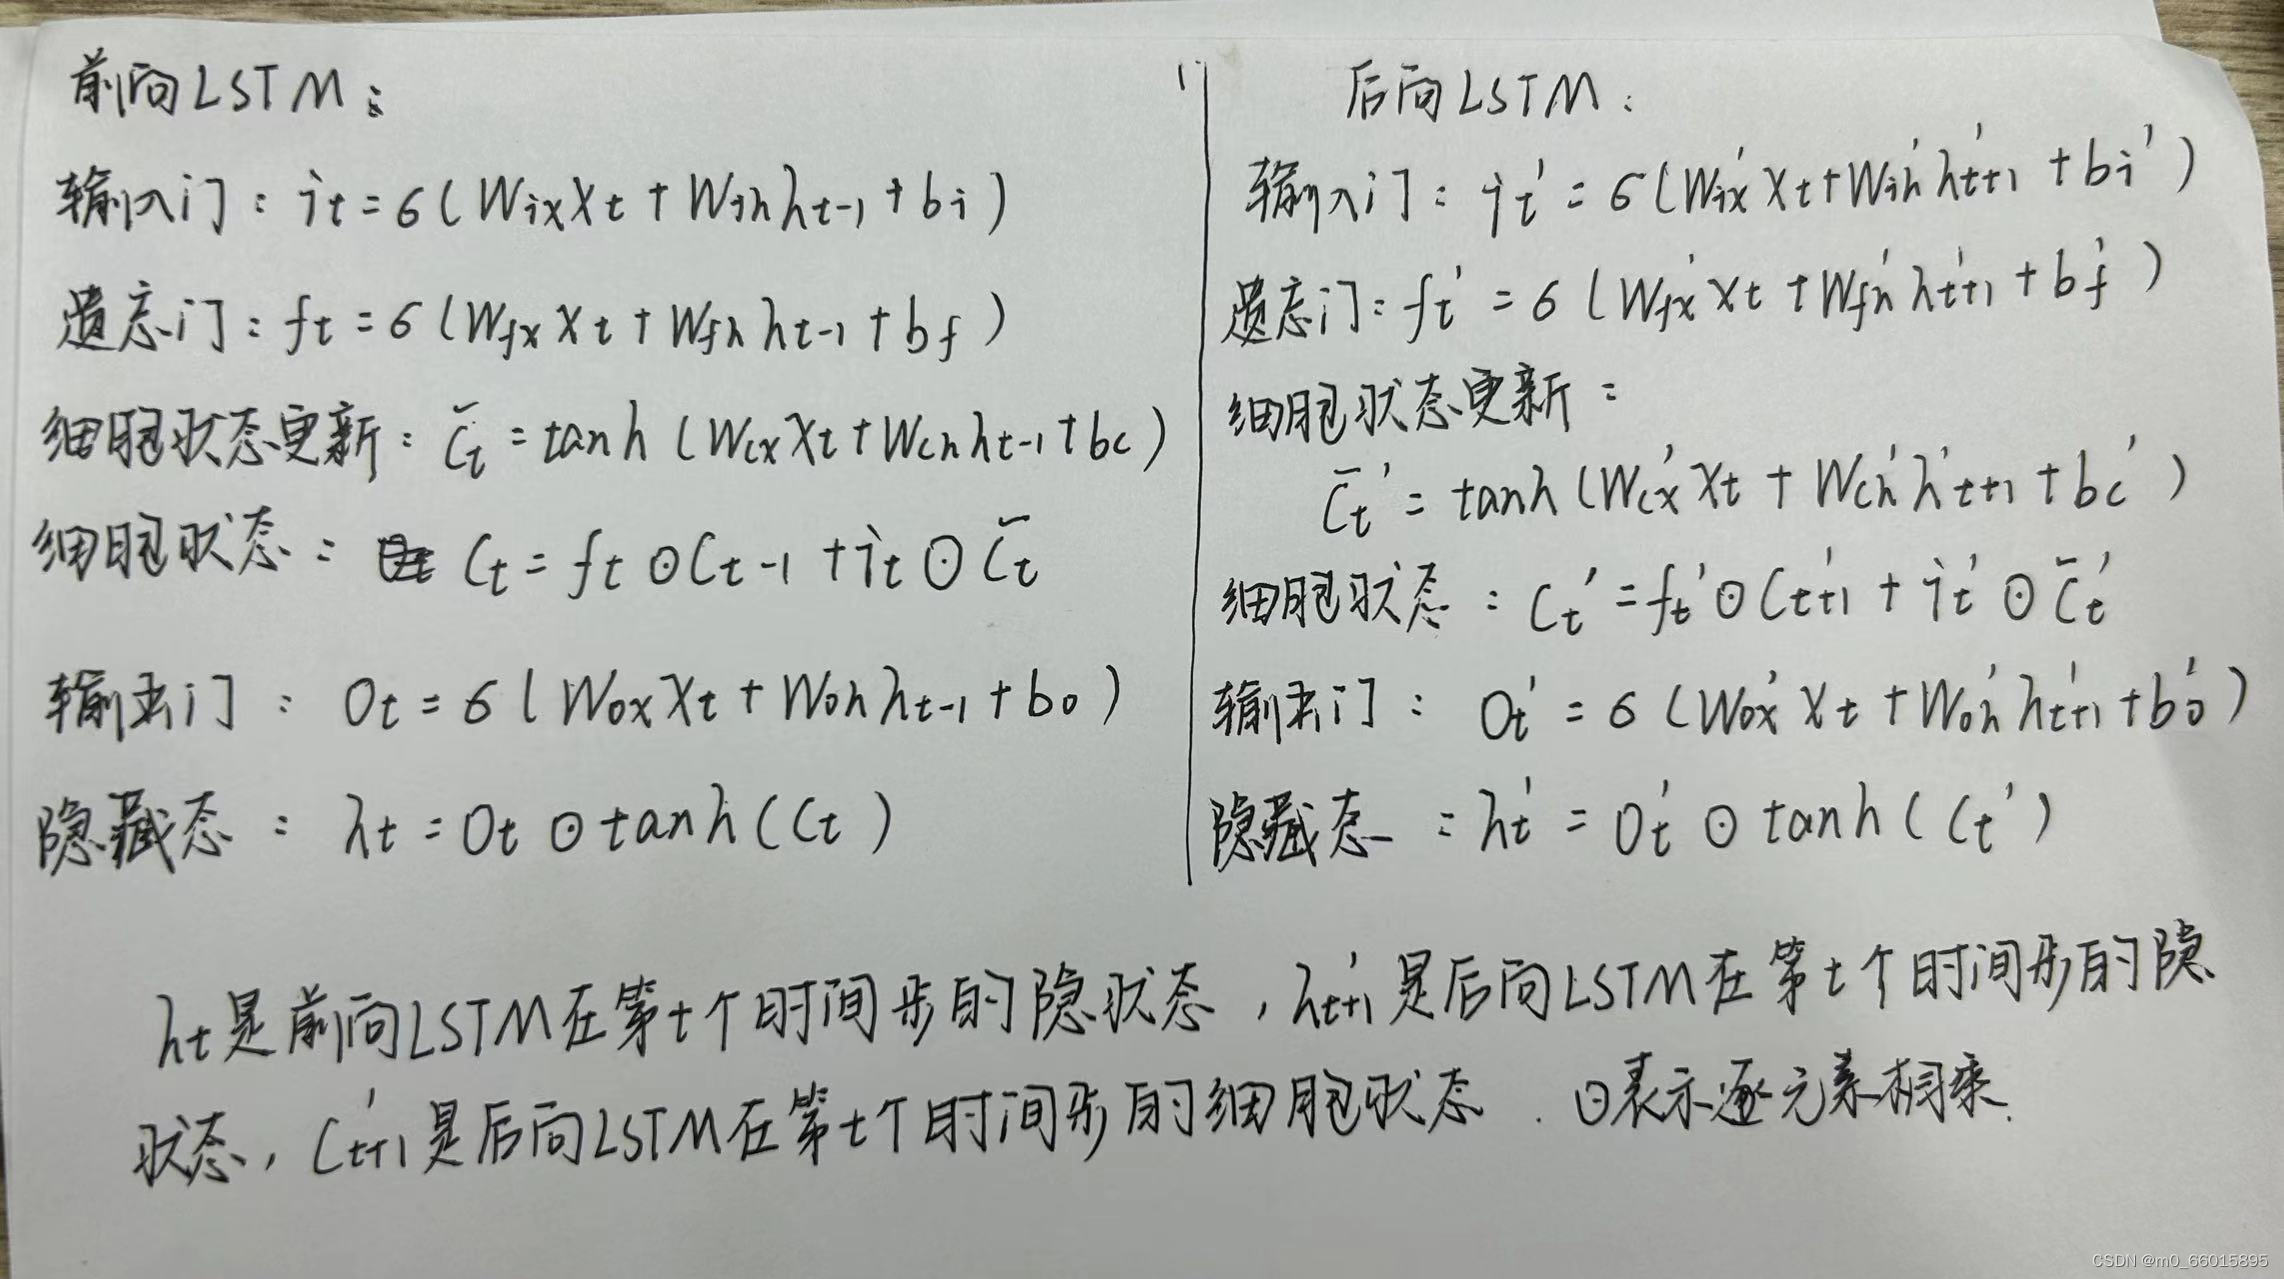 前向LSTM：
输入门：it=σ(WixXt+Wihht-1+bi)
遗忘门：ft=σ(WfxXt+Wfhht-1+bf)
细胞状态更新：C̄t=tanh(WcxXt+Wchht-1+bc)
细胞状态：Ct=ft⊙Ct-1+it⊙C̄t
输出门：Ot=σ(WoxXt+Wohht-1+bo)
隐藏态：ht=Ot⊙tanh(Ct)
后向LSTM：
输入门：it'=σ(Wix'Xt+Wih'ht+1'+bi')
遗忘门：ft'=σ(Wfx'Xt+Wfh'ht+1'+bf')
细胞状态更新：
C̄t'=tanh(Wcx'Xt+Wch'h't+1+bc')
细胞状态：Ct'=ft'⊙Ct+1'+it'⊙C̄t'
输出门：Ot'=σ(Wox'Xt+Woh'ht+1'+bo')
隐藏态：ht'=Ot'⊙tanh(Ct')
ht是前向LSTM在第t个时间步的隐状态，ht+1'是后向LSTM在第t个时间步的隐
状态，Ct+1'是后向LSTM在第t个时间步的细胞状态．⊙表示逐元素相乘．
CSDN @m0_66015895